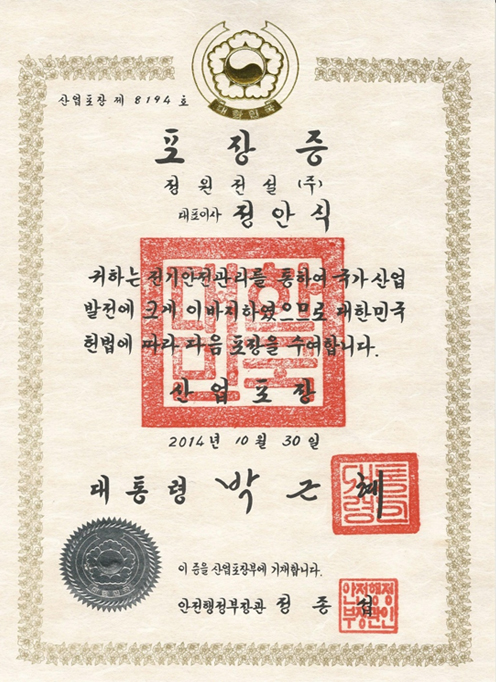 대한민국
산업포장 제 8194 호
포 장 증
정원전설(주)
대표이사 정안식
귀하는 전기안전관리를 통하여 국가 산업
발전에 크게 이바지하였으므로 대한민국
헌법에 따라 다음 포장을 수여합니다.
산 업 포 장
2014년 10월 30일
대통령 박 근 혜
이 증을 산업포장부에 기재합니다.
안전행정부장관 정 종 섭
안전행정
부장관인